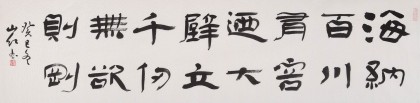 海納
百川
有容
迺大
壁立
千仞
無欲
則剛
癸巳冬